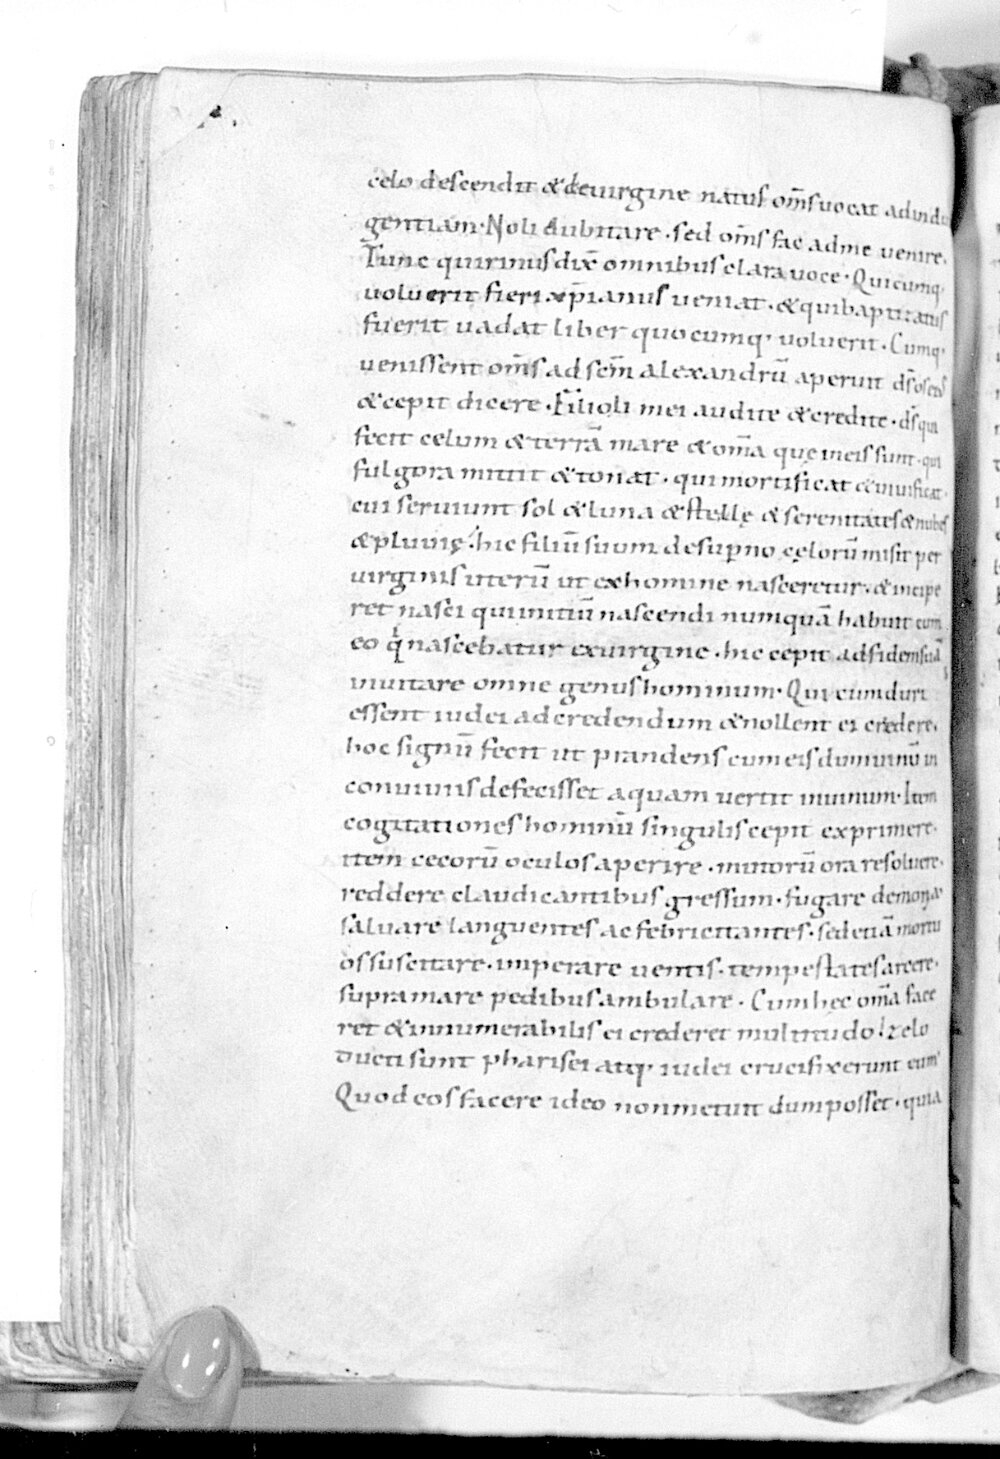 celo descendit & de uirgine natus om̄s uocat ad indul
gentiam. Noli dubitare. sed om̄s fac ad me uenire.
Tunc quirinus dix̄ omnibus clara uoce. Quicumq;
uoluerit fieri xp̄ianus ueniat. & qui baptizatus
fuerit uadat liber quocumq; uoluerit. Cumq;
uenissent om̄s ad sc̄m alexandrū aperuit d̄s os eius
& cepit dicere. Filioli mei audite & credite. d̄s qui
fecit celum & terrā mare & om̄a quę in eis sunt. qui
fulgora mittit & tonat. qui mortificat & uiuificat.
cui seruiunt sol & luna & stellę & serenitates & nubes
& pluuię. hic filiū suum de superno cęlorū misit per
uirginis uterū ut ex homine nasceretur. & incipe
ret nasci qui initiū nascendi numquā habuit cum
eo q̇ nascebatur ex uirgine. hic cepit ad fidem suā
inuitare omne genus hominum. Qui cum duri
essent iudei ad credendum & nollent ei credere.
hoc signū fecit ut prandens cum eis dum uinū in
conuiuiis defecisset aquam uertit in uinum. Item
cogitationes hominū singulis cepit exprimere.
item cecorū oculos aperire. mutorū ora resoluere.
reddere claudicantibus gressum. fugare demonia
saluare languentes ac febricitantes. sed etiā mortu
os suscitare. imperare uentis. tempestates arcere.
supra mare pedibus ambulare. Cum hęc om̄a face
ret & innumerabilis ei crederet multitudo. zelo
ducti sunt pharisei atq; iudei crucifixerunt eum.
Quod eos facere ideo non metuit dum posset. quia